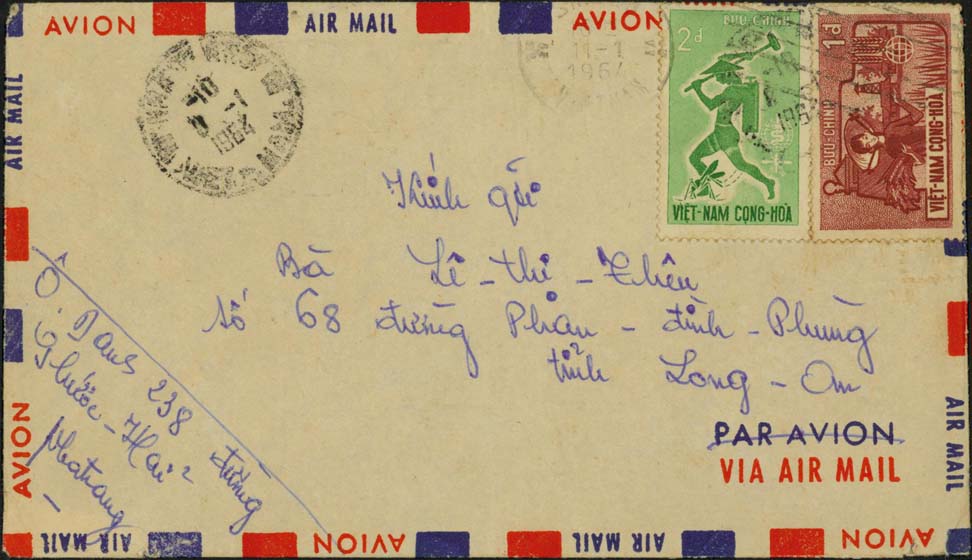 AVION
AIR MAIL
AVION
AIR MAIL
10-1
1964
11-1
1964
2đ
BƯU-CHÍNH
VIỆT-NAM CỘNG-HÒA
1đ
BƯU-CHÍNH
VIỆT-NAM CỘNG-HÒA
Kính gởi
Bà Lê-thị-Thêu
số 68 đường Phan-đình-Phùng
tỉnh Long-An
238 đường
Phước-Hải
Nhatrang
PAR AVION
VIA AIR MAIL
AVION
AIR MAIL
AIR MAIL
AIR MAIL
AVION
AIR MAIL
AVION